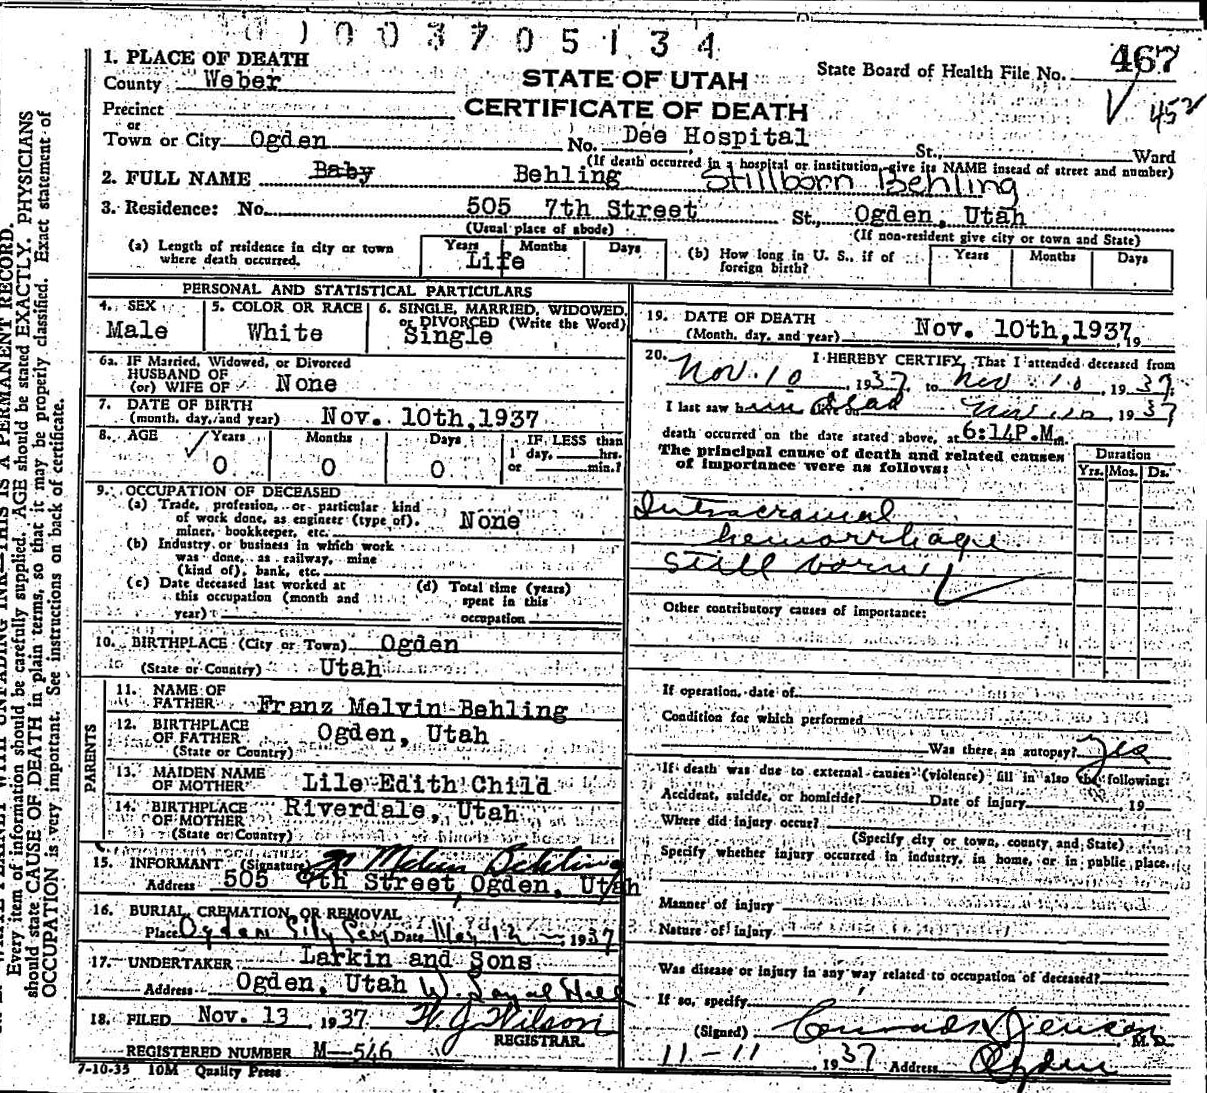 1003705134
467
452
1. PLACE OF DEATH
County Weber
STATE OF UTAH
CERTIFICATE OF DEATH
State Board of Health File No.
Precinct
or
Town or City Ogden No. Dee Hospital St., Ward
(If death occurred in a hospital or institution, give its NAME insead of street and number)
2. FULL NAME Baby Behling Stillborn Behling
3. Residence: No. 505 7th Street St., Ogden, Utah
(Usual place of abode) (If non-resident give city or town and State)
(a) Length of residence in city or town where death occurred. Years Months Days
Life
(b) How long in U. S., if of foreign birth? Years Months Days
PERSONAL AND STATISTICAL PARTICULARS
4. SEX
Male
5. COLOR OR RACE
White
6. SINGLE, MARRIED, WIDOWED, or DIVORCED (Write the Word)
Single
6a. IF Married, Widowed, or Divorced
HUSBAND OF
(or) WIFE OF None
7. DATE OF BIRTH
(month, day, and year) Nov. 10th, 1937
8. AGE Years Months Days IF LESS than
1 day, hrs.
or min.?
0 0 0
9. OCCUPATION OF DECEASED
(a) Trade, profession, or particular kind
of work done, as engineer (type of),
miner, bookkeeper, etc. None
(b) Industry or business in which work
was done, as railway, mine
(kind of), bank, etc.
(c) Date deceased last worked at
this occupation (month and
year)
(d) Total time (years)
spent in this
occupation
10. BIRTHPLACE (City or Town) Ogden
(State or Country) Utah
PARENTS
11. NAME OF
FATHER Franz Melvin Behling
12. BIRTHPLACE
OF FATHER Ogden, Utah
(State or Country)
13. MAIDEN NAME
OF MOTHER Lile Edith Child
14. BIRTHPLACE
OF MOTHER Riverdale, Utah
(State or Country)
15. INFORMANT (Signature) Melvin Behling
Address 505 7th Street, Ogden, Utah
16. BURIAL, CREMATION, OR REMOVAL
Place Ogden City Date 12 1937
17. UNDERTAKER Larkin and Sons
Address Ogden, Utah
18. FILED Nov. 13 1937 W. J. Wilson
REGISTRAR.
REGISTERED NUMBER M-546
7-10-35 10M Quality Press
19. DATE OF DEATH
(Month, day, and year) Nov. 10th, 1937, 19
20. I HEREBY CERTIFY, That I attended deceased from
Nov. 10, 1937 to Nov. 10, 1937
I last saw him Dead Nov 10, 1937
death occurred on the date stated above, at 6:14P.M.
The principal cause of death and related causes
of importance were as follows:
Duration
Yrs. Mos. Ds.
Intracranial
hemorrhage
Still born
Other contributory causes of importance:
If operation, date of
Condition for which performed
Was there an autopsy? Yes
If death was due to external causes (violence) fill in also the following:
Accident, suicide, or homicide? Date of injury , 19
Where did injury occur?
(Specify city or town, county, and State)
Specify whether injury occurred in industry, in home, or in public place.
Manner of injury
Nature of injury
Was disease or injury in any way related to occupation of deceased?
If so, specify
(Signed) Conrad Jenson M. D.
11-11, 1937 Address Ogden
Every item of information should be carefully supplied. AGE should be stated EXACTLY. PHYSICIANS
should state CAUSE OF DEATH in plain terms, so that it may be properly classified. Exact statement of
OCCUPATION is very important. See instructions on back of certificate.